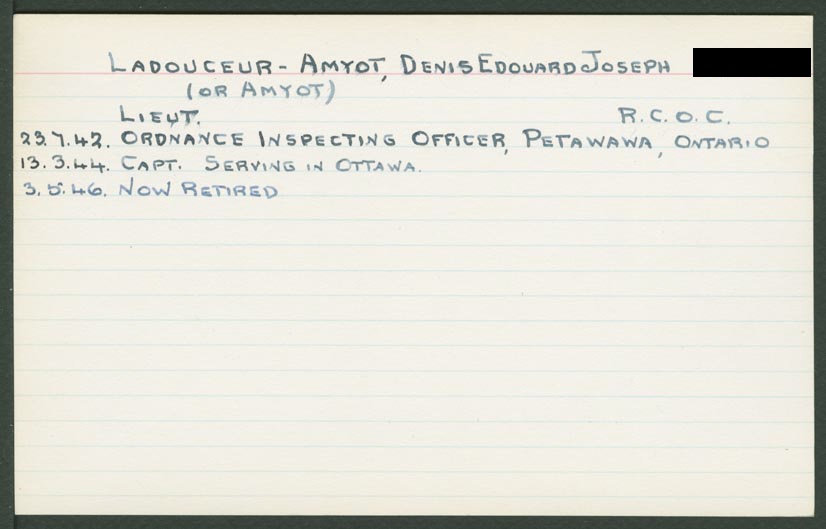 LADOUCEUR - AMYOT, DENIS EDOUARD JOSEPH
(OR AMYOT)
LIEUT. R.C.O.C.
23.7.42. ORDNANCE INSPECTING OFFICER, PETAWAWA, ONTARIO
13.3.44. CAPT. SERVING IN OTTAWA.
3.5.46. NOW RETIRED